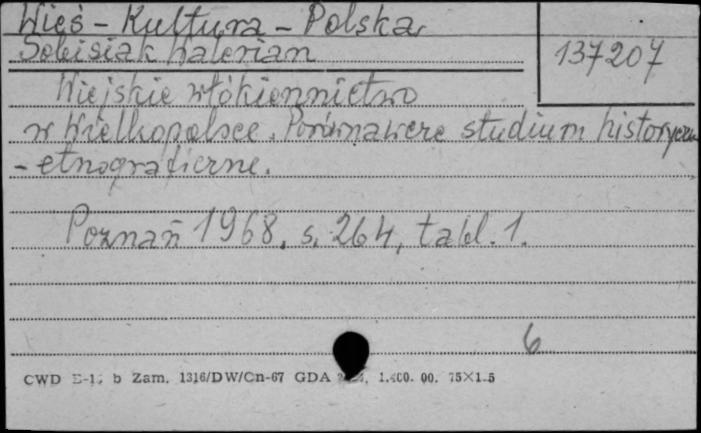 Wieś - Kultura - Polska
Sobisiak Walerian
137207
Wiejskie włókiennictwo
w Wielkopolsce. Porównawcze studium historyczno
- etnograficzne.
Poznań 1968. s. 264, tabl. 1.
6
CWD b Zam. 1316/DW/Cn-67 GDA 75X1